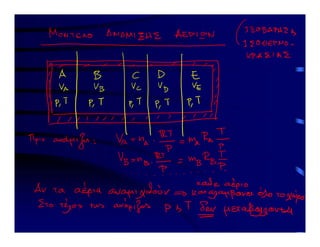 ΜΟΝΤΕΛΟ ΑΝΑΜΙΞΗΣ ΑΕΡΙΩΝ
(ΙΣΟΒΑΡΗΣ
ΙΣΟΘΕΡΜΟ-
ΚΡΑΣΙΑΣ
A B C D E
V_A V_B V_C V_D V_E
P, T P, T P, T P, T P, T
Πριν ανάμιξη: V_A = n_A · RT/P = m_A R_A T/P
V_B = n_B · RT/P = m_B R_B T/P
Αν τα αέρια αναμιχθούν => κάθε αέριο καταλαμβάνει όλο το χώρο
Στο τέλος της ανάμιξης P & T δεν μεταβάλλονται